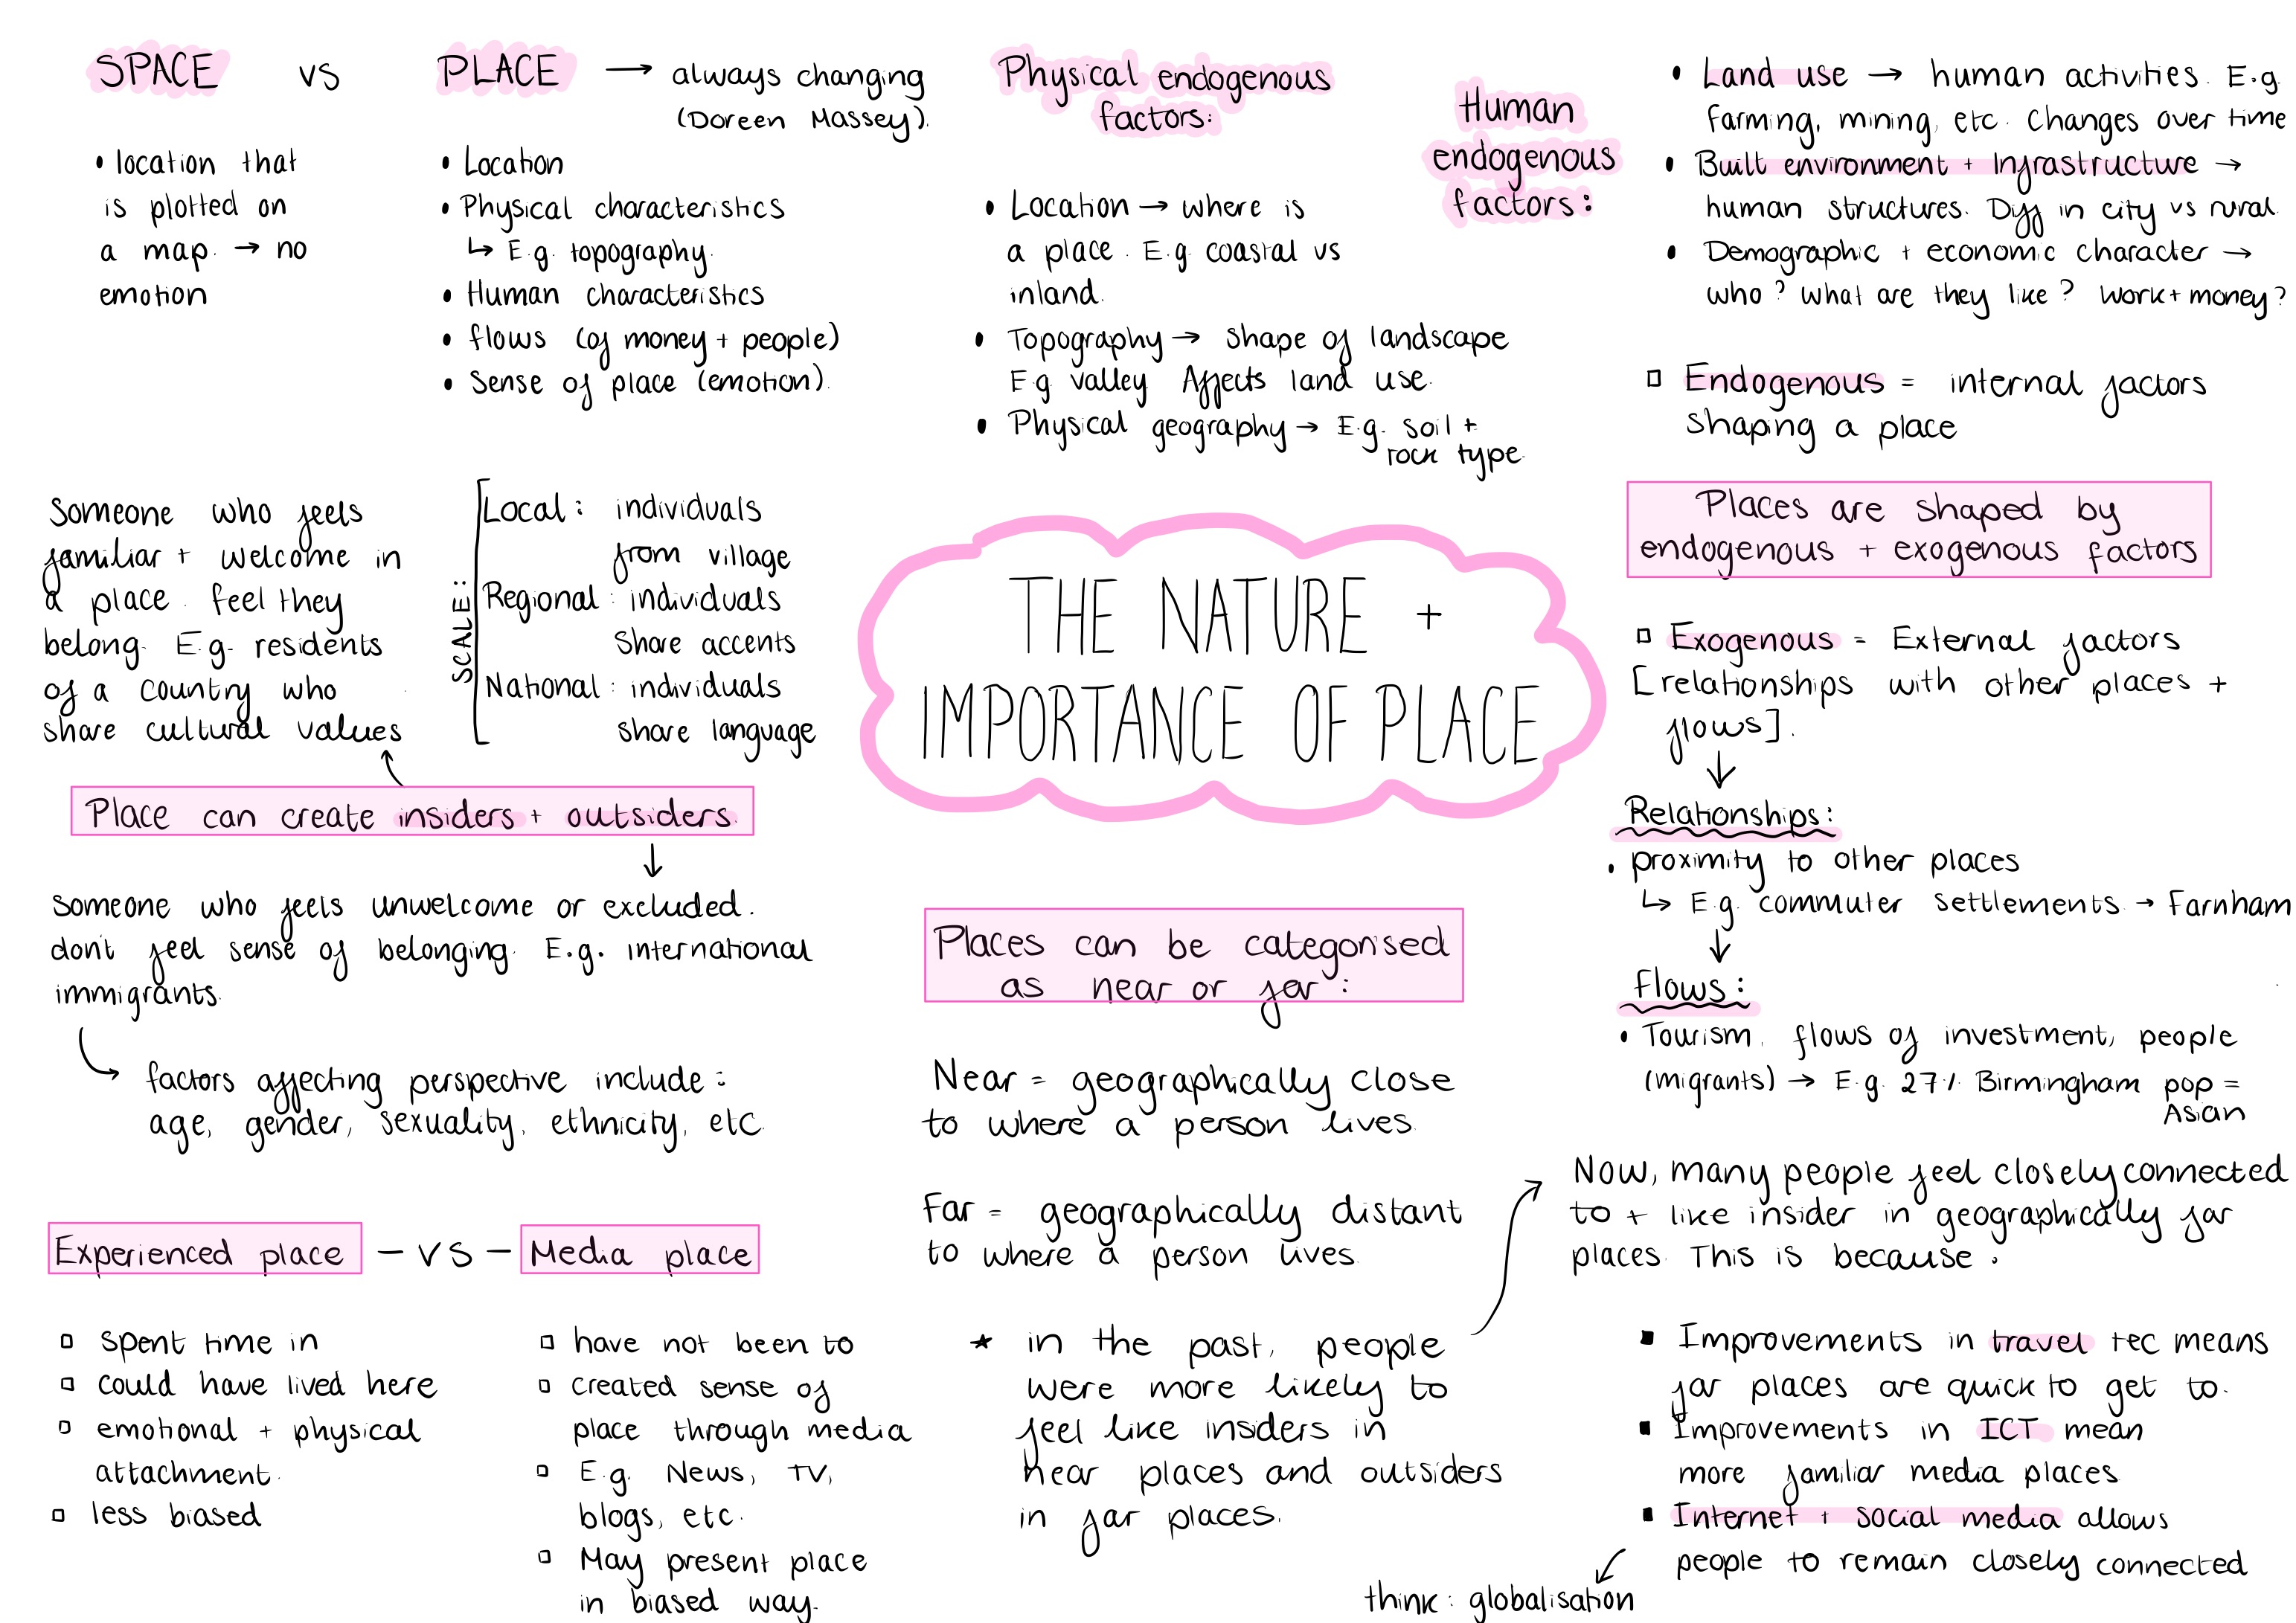 SPACE vs PLACE → always changing
(Doreen Massey).
• location that
is plotted on
a map. → no
emotion
• Location
• Physical characteristics
↳ E.g. topography.
• Human characteristics
• flows (of money + people)
• Sense of place (emotion).
Physical endogenous
factors:
• Location → where is
a place. E.g. coastal vs
inland.
• Topography → shape of landscape
E.g valley Affects land use.
• Physical geography → E.g. soil +
rock type.
Human
endogenous
factors:
• Land use → human activities. E.g.
farming, mining, etc. Changes over time
• Built environment + Infrastructure →
human structures. Diff in city vs rural.
• Demographic + economic character →
who? What are they like? Work + money?
▫ Endogenous = internal factors
shaping a place
Places are shaped by
endogenous + exogenous factors
▫ Exogenous = External factors
[relationships with other places +
flows].
↓
Relationships:
• proximity to other places
↳ E.g. commuter settlements → Farnham
↓
Flows:
• Tourism, flows of investment, people
(migrants) → E.g. 27% Birmingham pop =
Asian
Someone who feels
familiar + welcome in
a place. feel they
belong. E.g. residents
of a country who
share cultural values
SCALE:
Local: individuals
from village
Regional: individuals
share accents
National: individuals
share language
THE NATURE +
IMPORTANCE OF PLACE
Place can create insiders + outsiders.
↓
someone who feels unwelcome or excluded.
don't feel sense of belonging. E.g. international
immigrants.
factors affecting perspective include:
age, gender, sexuality, ethnicity, etc.
Experienced place - vs - Media place
▫ spent time in
▫ could have lived here
▫ emotional + physical
attachment.
▫ less biased
▫ have not been to
▫ created sense of
place through media
▫ E.g. News, TV,
blogs, etc.
▫ May present place
in biased way.
Places can be categorised
as near or far:
Near = geographically close
to where a person lives.
Far = geographically distant
to where a person lives.
★ in the past, people
were more likely to
feel like insiders in
near places and outsiders
in far places.
Now, many people feel closely connected
to + like insider in geographically far
places. This is because:
▪ Improvements in travel tec means
far places are quick to get to.
▪ Improvements in ICT mean
more familiar media places
▪ Internet + social media allows
people to remain closely connected
think: globalisation